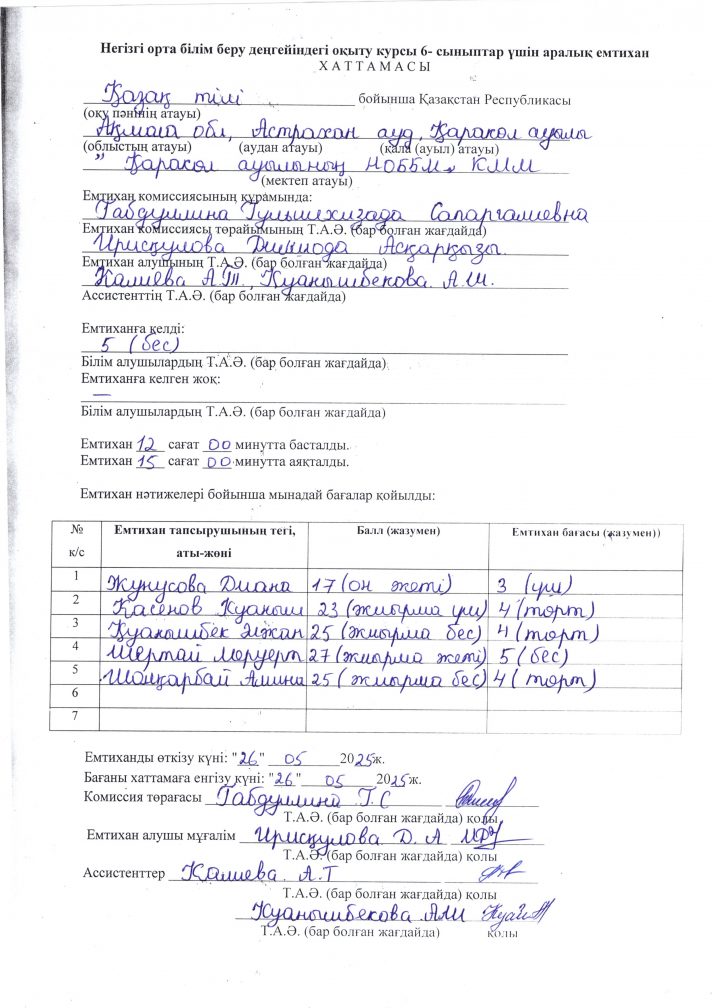 Негізгі орта білім беру деңгейіндегі оқыту курсы 6- сыныптар үшін аралық емтихан
ХАТТАМАСЫ
Қазақ тілі бойынша Қазақстан Республикасы
(оқу пәнінің атауы)
Ақмола обл, Астрахан ауд, Қаракөл ауылы
(облыстың атауы) (аудан атауы) (қала (ауыл) атауы)
" Қаракөл ауылының НОББМ" КММ
(мектеп атауы)
Емтихан комиссиясының құрамында:
Габдуллина Гульшехизада Сапаргалиевна
Емтихан комиссиясы төрайымының Т.А.Ә. (бар болған жағдайда)
Ирисқулова Дильнода Асқарқызы.
Емтихан алушының Т.А.Ә. (бар болған жағдайда)
Калиева А.Т., Қуанышбекова А.Ш.
Ассистенттің Т.А.Ә. (бар болған жағдайда)
Емтиханға келді:
5 (бес)
Білім алушылардың Т.А.Ә. (бар болған жағдайда)
Емтиханға келген жоқ:
—
Білім алушылардың Т.А.Ә. (бар болған жағдайда)
Емтихан 12 сағат 00 минутта басталды.
Емтихан 15 сағат 00 минутта аяқталды.
Емтихан нәтижелері бойынша мынадай бағалар қойылды:
№ Емтихан тапсырушының тегі, Балл (жазумен) Емтихан бағасы (жазумен))
к/с аты-жөні
1 Жунусова Диана 17 (он жеті) 3 (үш)
2 Касенов Қуаныш 23 (жиырма үш) 4 (төрт)
3 Қуанышбек Әлжан 25 (жиырма бес) 4 (төрт)
4 Шертай Меруерт 27 (жиырма жеті) 5 (бес)
5 Шолқарбай Амина 25 (жиырма бес) 4 (төрт)
6
7
Емтиханды өткізу күні: "26" 05 2025ж.
Бағаны хаттамаға енгізу күні: "26" 05 2025ж.
Комиссия төрағасы Габдуллина Г.С
Т.А.Ә. (бар болған жағдайда) қолы
Емтихан алушы мұғалім Ирисқулова Д. А
Т.А.Ә. (бар болған жағдайда) қолы
Ассистенттер Калиева А.Т
Т.А.Ә. (бар болған жағдайда) қолы
Қуанышбекова А.Ш
Т.А.Ә. (бар болған жағдайда) қолы